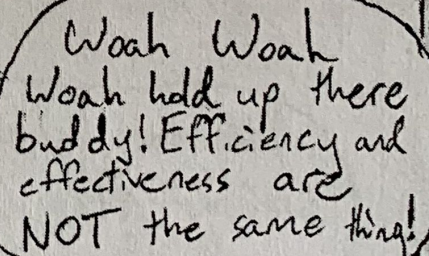 Woah Woah
Woah hold up there
buddy! Efficiency and
effectiveness are
NOT the same thing!